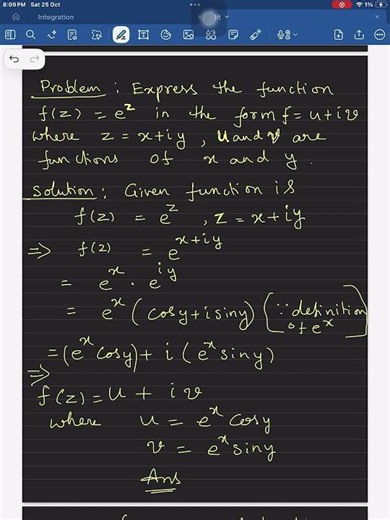 8:09 PM Sat 25 Oct
1%
Integration
Problem : Express the function
f(z) = e^z in the form f = u + iv
where z = x+iy , u and v are
functions of x and y .
Solution : Given function is
f(z) = e^z , z = x+iy
⇒ f(z) = e^{x+iy}
= e^x . e^{iy}
= e^x (cosy + i siny) [∵ definition of e^x]
= (e^x cosy) + i (e^x siny)
⇒
f(z) = u + i v
where u = e^x cosy
v = e^x siny
Ans